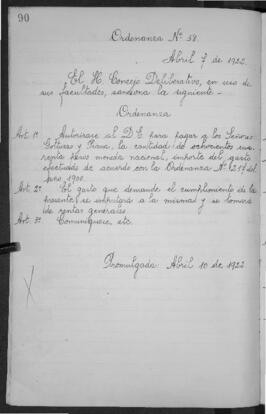 90
Ordenanza Nº 58.
Abril 7 de 1922.
El H. Concejo Deliberativo, en uso de
sus facultades, sanciona la siguiente -
Ordenanza
Art. 1º Autorizase al D. E. para pagar a los Señores
y la cantidad de ochocientos
pesos moneda nacional, importe del gasto
efectuado de acuerdo con la Ordenanza Nº del
Art. 2º El gasto que demande el cumplimiento de la
presente, se imputará a la misma y se tomará
de rentas generales.
Art. 3º Comuníquese, etc.
Promulgada Abril 10 de 1922